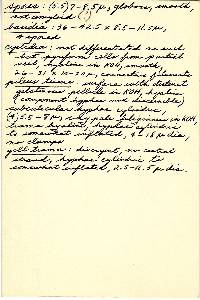 spores: (5.5)7-8.5 µ, globose, smooth,
not amyloid (!)
basidia: 36-42.5 x 8.5-11.5 µ,
4 spored
cystidia: not differentiated as such
but pyriform cells from
hyaline in KOH, smooth,
26-31 x 12-20 µ,
pileus tissue: surface with distinct
gelatinous pellicle in KOH, hyaline
(component hyphae not discernible)
subcuticular hyphae cylindric,
(4)5.5-8 µ, in KOH,
trama hyaline, hyphae cylindric
to somewhat inflated, 4-18 µ dia.
no clamps
gill trama: divergent, no central
strand, hyphae cylindric to
somewhat inflated, 2.5-11.5 µ dia.